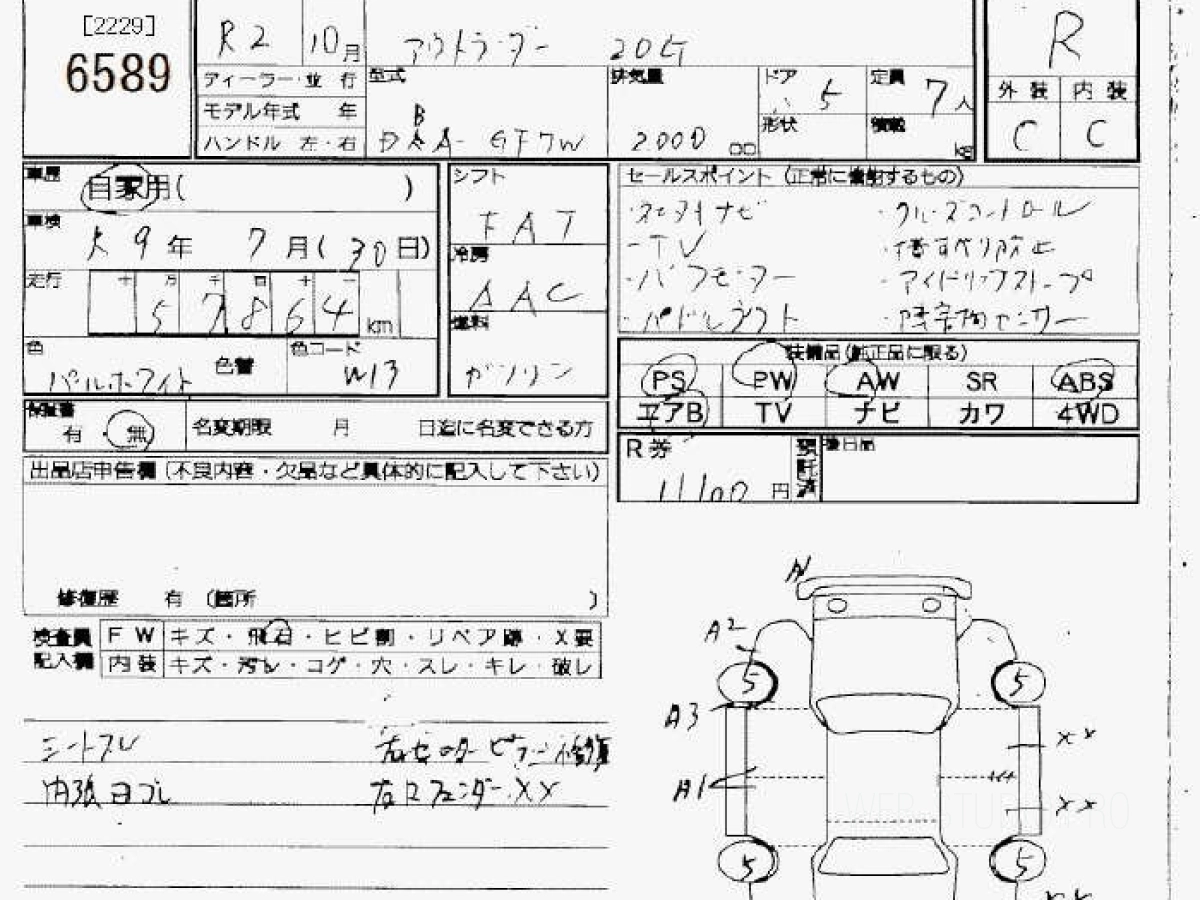 [2229]
6589
R2 10月 アウトランダー 20G
ディーラー・並行
モデル年式 年
ハンドル 左・右
型式 B
DAA-GF7W
排気量 2000 cc
ドア 5
形状
定員 7人
積載 kg
R
外装 内装
C C
車歴 自家用( )
車検 R9年 7月(30日)
走行 十 万 千 百 十 一
57864 km
色 パールホワイト 色替
色コード W13
シフト
FAT
冷房
AAC
燃料
ガソリン
セールスポイント (正常に機能するもの)
・スマートナビ ・クルーズコントロール
・TV ・横すべり防止
・パワーモーター ・アイドリングストップ
・パドルシフト ・障害物センサー
装備品(純正品に限る)
PS PW AW SR ABS
エアB TV ナビ カワ 4WD
保証書 有・無
名変期限 月 日迄に名変できる方
R券 11100円 預託済
後日品
出品店申告欄(不良内容・欠品など具体的に記入して下さい)
修復歴 有 (箇所 )
検査員 FW キズ・飛石・ヒビ割・リペア跡・X要
記入欄 内装 キズ・汚れ・コゲ・穴・スレ・キレ・破レ
シートスレ 右センターピラー修復
内張ヨゴレ 右Rフェンダー XX
A1
A2
5 5
A3
XX
A1
XX
5 5
XX